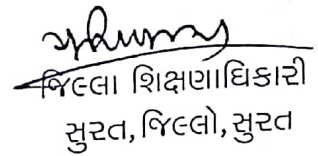 જિલ્લા શિક્ષણાધિકારી
સુરત, જિલ્લો, સુરત